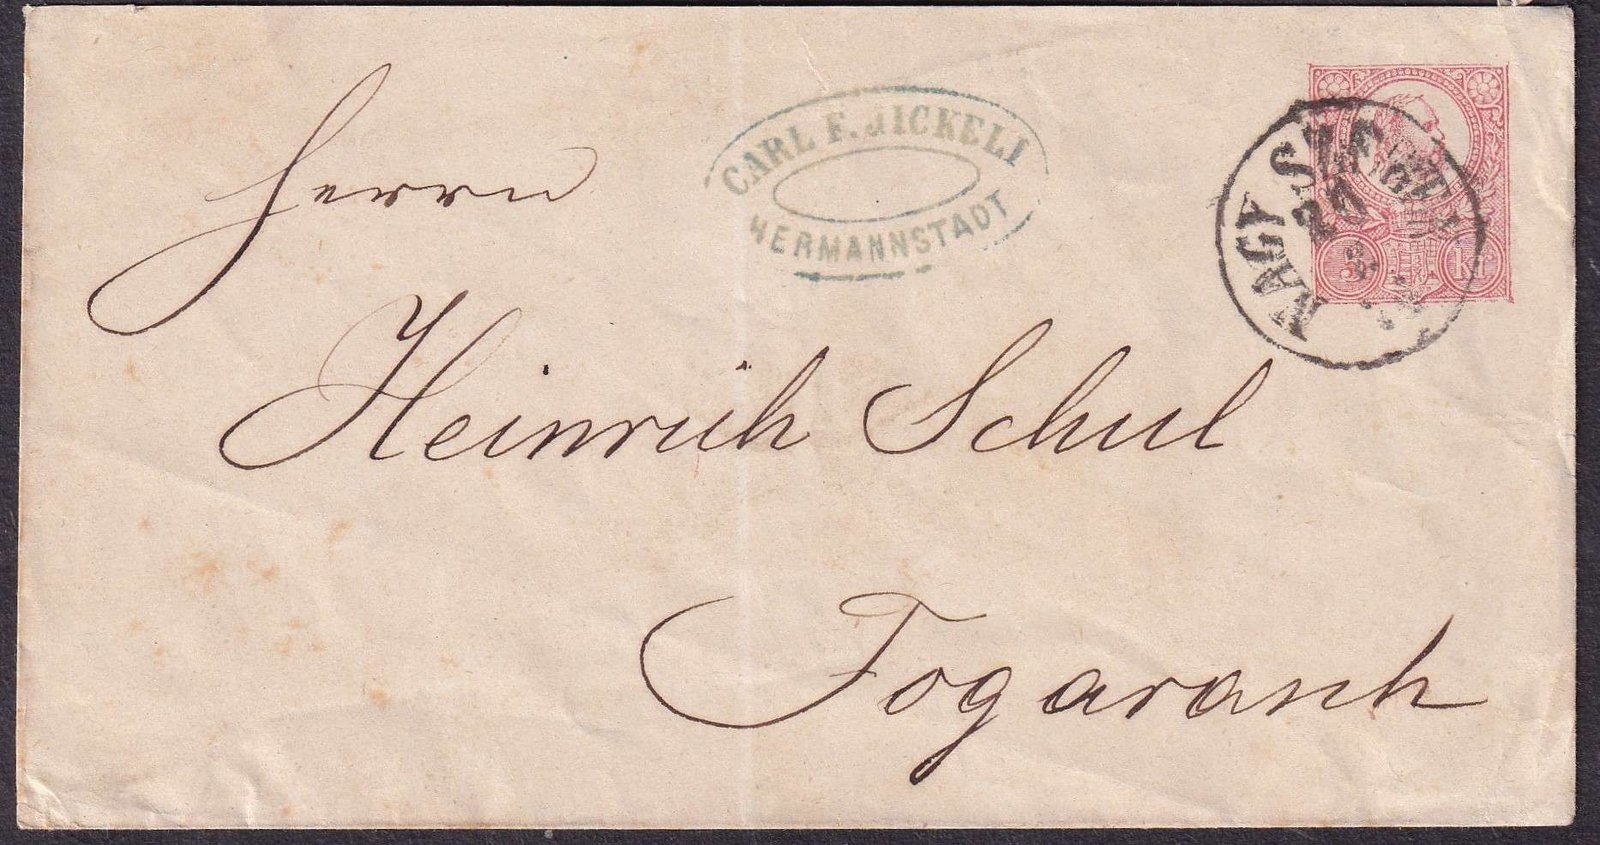 CARL F. JICKELI
HERMANNSTADT
NAGY SZEBEN
20
3 Kr
Herrn
Heinrich Schul
Fogarasch